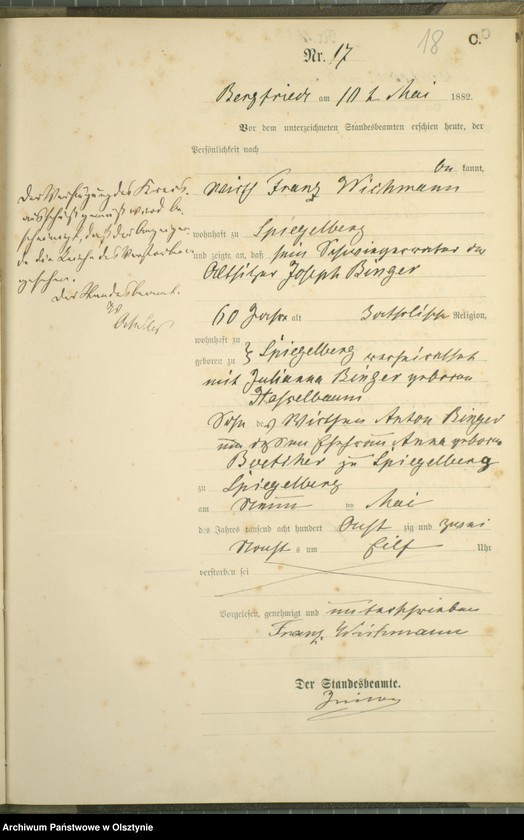 18
C.
Nr. 17
Bergfriede am 10 t Mai 1882.
Vor dem unterzeichneten Standesbeamten erschien heute, der
Persönlichkeit nach
be kannt,
Wirth Franz Wichmann
wohnhaft zu Spiegelberg
und zeigte an, daß sein Schwiegervater der
Altsitzer Joseph Binger
60 Jahre alt Katholisch Religion,
wohnhaft zu
geboren zu Spiegelberg verheirathet
mit Julianna Binger geboren
Hasselbaum
Sohn des Wirthen Anton Binger
und dessen Ehefrau Anna geboren
Boetcher zu Spiegelberg
zu Spiegelberg
am Neun ten Mai
des Jahres tausend acht hundert Acht zig und zwei
Nacht s um Eilf Uhr
verstorben sei
Vorgelesen, genehmigt und unterschrieben
Franz Wichmann
Der Standesbeamte.
Der Verfügung des Kreis-
ausschuß gemäß wird be-
scheinigt, daß der Anzeigen-
de die Leiche des Verstorbenen
gesehen.
Der Standesbeamte.
Archiwum Państwowe w Olsztynie